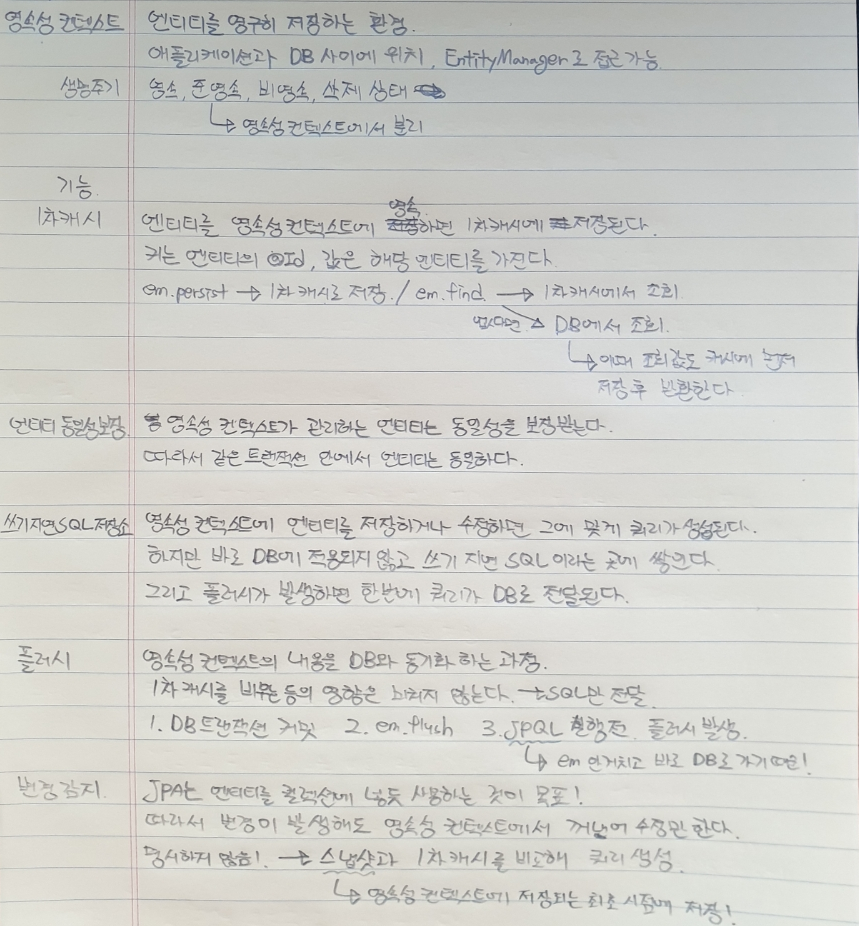 영속성 컨텍스트 엔티티를 영구히 저장하는 환경.
애플리케이션과 DB 사이에 위치, EntityManager로 접근 가능
생명주기 영속, 준영속, 비영속, 삭제 상태
↳ 영속성 컨텍스트에서 분리
기능
1차캐시 엔티티를 영속성 컨텍스트에 영속하면 1차캐시에 저장된다.
키는 엔티티의 @Id, 값은 해당 엔티티를 가진다.
em.persist → 1차 캐시로 저장. / em.find → 1차 캐시에서 조회.
없다면 DB에서 조회.
↳ 이때 조회값도 캐시에 먼저
저장 후 반환한다.
엔티티 동일성 보장. 영속성 컨텍스트가 관리하는 엔티티는 동일성을 보장받는다.
따라서 같은 트랜잭션 안에서 엔티티는 동일하다.
쓰기지연SQL저장소 영속성 컨텍스트에 엔티티를 저장하거나 수정하면 그에 맞게 쿼리가 생성된다.
하지만 바로 DB에 적용되지 않고 쓰기 지연 SQL 이라는 곳에 쌓인다.
그리고 플러시가 발생하면 한번에 쿼리가 DB로 전달된다.
플러시 영속성 컨텍스트의 내용을 DB와 동기화 하는 과정.
1차 캐시를 비우는 등의 영향은 미치지 않는다. → SQL만 전달.
1. DB 트랜잭션 커밋 2. em.flush 3. JPQL 실행 전 플러시 발생.
↳ em 안거치고 바로 DB로 가기 때문!
변경감지. JPA는 엔티티를 컬렉션에 넣듯 사용하는 것이 목표!
따라서 변경이 발생해도 영속성 컨텍스트에서 꺼내어 수정만 한다.
명시하지 않음! → 스냅샷과 1차 캐시를 비교해 쿼리 생성.
↳ 영속성 컨텍스트에 저장되는 최초 시점에 저장!